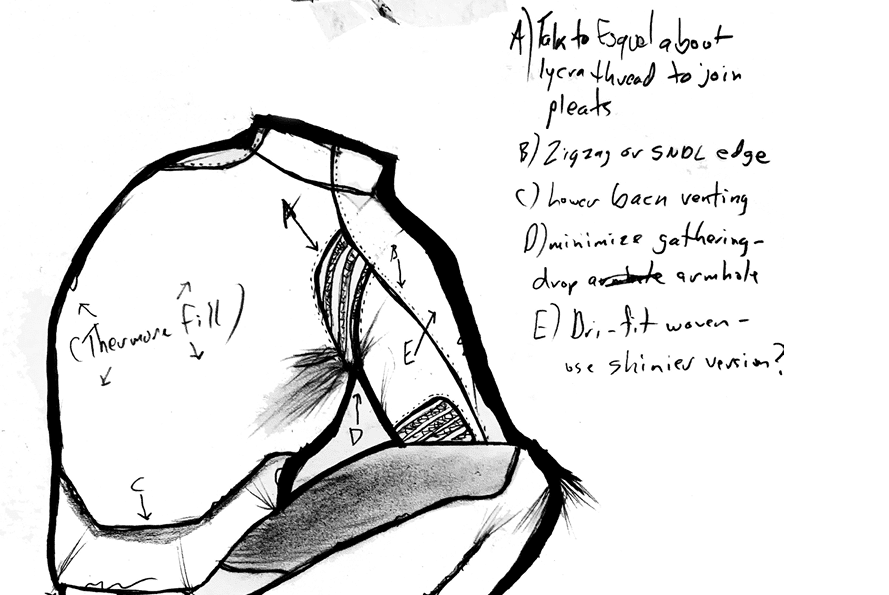 A) Talk to Esquel about
lycra thread to join
pleats
B) Zigzag or SNDL edge
C) Lower back venting
D) minimize gathering-
drop armhole armhole
E) Dri-fit woven-
use shinier version?
A
B
(Thermore fill)
E
D
C